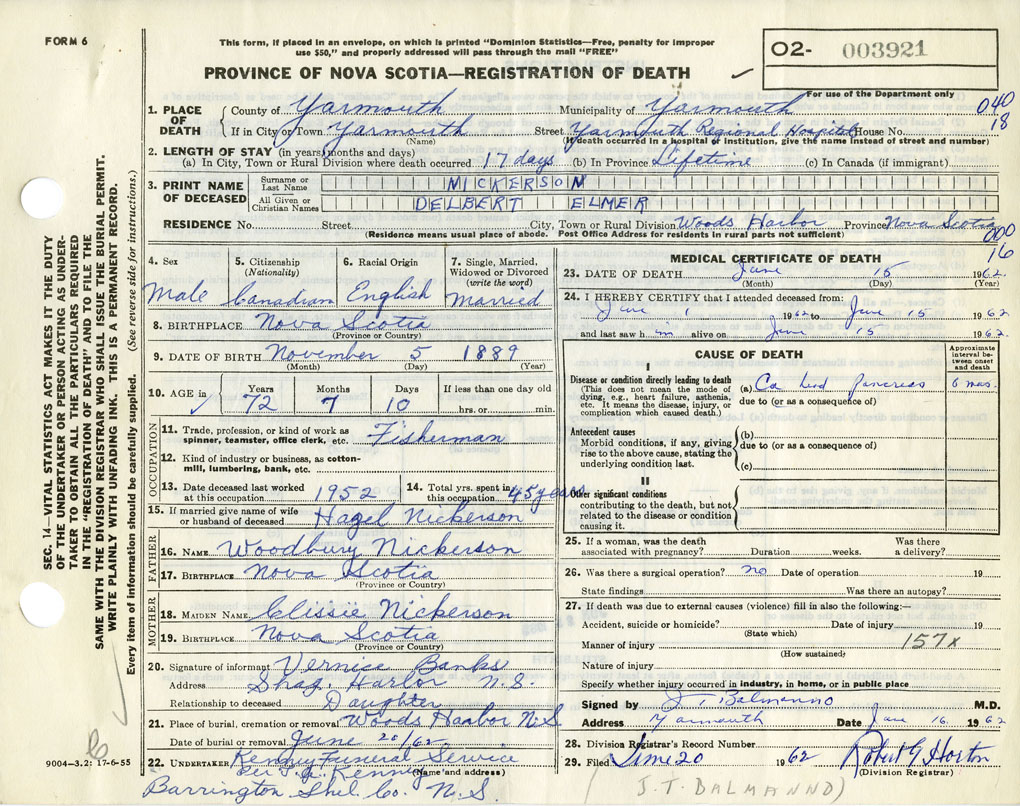 FORM 6
This form, if placed in an envelope, on which is printed "Dominion Statistics—Free, penalty for improper
use $50," and properly addressed will pass through the mail "FREE"
PROVINCE OF NOVA SCOTIA—REGISTRATION OF DEATH
O2- 003921
For use of the Department only
040
18
1. PLACE OF DEATH County of Yarmouth Municipality of Yarmouth
If in City or Town Yarmouth Street Yarmouth Regional Hospital House No.
(Name) (If death occurred in a hospital or institution, give the name instead of street and number)
2. LENGTH OF STAY (in years, months and days)
(a) In City, Town or Rural Division where death occurred. 17 days (b) In Province Lifetime (c) In Canada (if immigrant)
3. PRINT NAME OF DECEASED Surname or Last Name MICKERSON
All Given or Christian Names DELBERT ELMER
RESIDENCE No. Street City, Town or Rural Division Woods Harbor Province Nova Scotia
(Residence means usual place of abode. Post Office Address for residents in rural parts not sufficient)
000
16
4. Sex 5. Citizenship (Nationality) 6. Racial Origin 7. Single, Married, Widowed or Divorced (write the word)
Male Canadian English Married
8. BIRTHPLACE Nova Scotia
(Province or Country)
9. DATE OF BIRTH November 5 1889
(Month) (Day) (Year)
10. AGE in Years Months Days If less than one day old
72 7 10 hrs. or min.
OCCUPATION
11. Trade, profession, or kind of work as
spinner, teamster, office clerk, etc. Fisherman
12. Kind of industry or business, as cotton-
mill, lumbering, bank, etc.
13. Date deceased last worked at this occupation 1952 14. Total yrs. spent in this occupation 45 years
15. If married give name of wife
or husband of deceased Hazel Nickerson
FATHER
16. NAME Woodbury Nickerson
17. BIRTHPLACE Nova Scotia
(Province or Country)
MOTHER
18. MAIDEN NAME Clissie Nickerson
19. BIRTHPLACE Nova Scotia
(Province or Country)
20. Signature of informant Vernice Banks
Address Shag Harbor N.S.
Relationship to deceased Daughter
21. Place of burial, cremation or removal Woods Harbor N.S
Date of burial or removal June 20/62
22. UNDERTAKER Kenney Funeral Service
(Name and address)
Barrington Shel. Co. N.S.
MEDICAL CERTIFICATE OF DEATH
23. DATE OF DEATH June 15 1962
(Month) (Day) (Year)
24. I HEREBY CERTIFY that I attended deceased from:
June 1 1962 to June 15 1962
and last saw h im alive on June 15 1962
CAUSE OF DEATH
Approximate interval between onset and death
I
Disease or condition directly leading to death
(This does not mean the mode of
dying, e.g., heart failure, asthenia,
etc. It means the disease, injury, or
complication which caused death.)
(a) Ca head pancreas 6 mos.
due to (or as a consequence of)
Antecedent causes
Morbid conditions, if any, giving
rise to the above cause, stating the
underlying condition last.
(b)
due to (or as a consequence of)
(c)
II
Other significant conditions
contributing to the death, but not
related to the disease or condition
causing it.
25. If a woman, was the death associated with pregnancy? Duration weeks. Was there a delivery?
26. Was there a surgical operation? no Date of operation 19
State findings Was there an autopsy?
27. If death was due to external causes (violence) fill in also the following:—
Accident, suicide or homicide? Date of injury 19
(State which)
Manner of injury 157x
(How sustained)
Nature of injury
Specify whether injury occurred in industry, in home, or in public place
Signed by J. T. Balmanno M.D.
Address Yarmouth Date June 16 1962
28. Division Registrar's Record Number
29. Filed June 20 1962 Robert G Horton
(Division Registrar)
J.T. BALMANNO)
SEC. 14—VITAL STATISTICS ACT MAKES IT THE DUTY
OF THE UNDERTAKER OR PERSON ACTING AS UNDER-
TAKER TO OBTAIN ALL THE PARTICULARS REQUIRED
IN THE "REGISTRATION OF DEATH" AND TO FILE THE
SAME WITH THE DIVISION REGISTRAR WHO SHALL ISSUE THE BURIAL PERMIT.
WRITE PLAINLY WITH UNFADING INK. THIS IS A PERMANENT RECORD.
Every item of information should be carefully supplied. (See reverse side for instructions.)
9004—3.2: 17-6-55